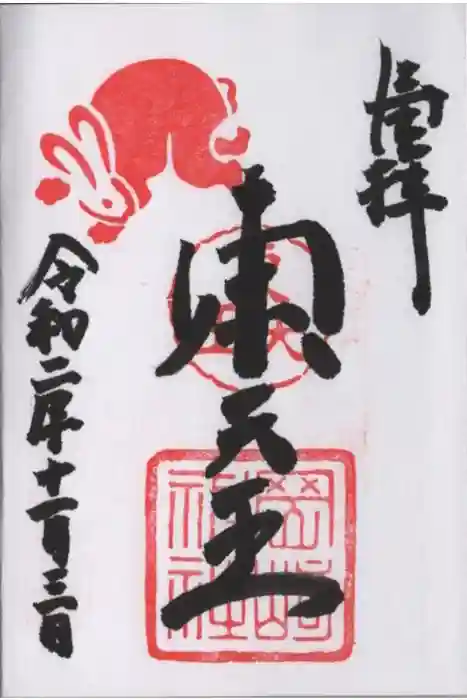 拝
東天王
岡崎
神社
令和二年十一月三日